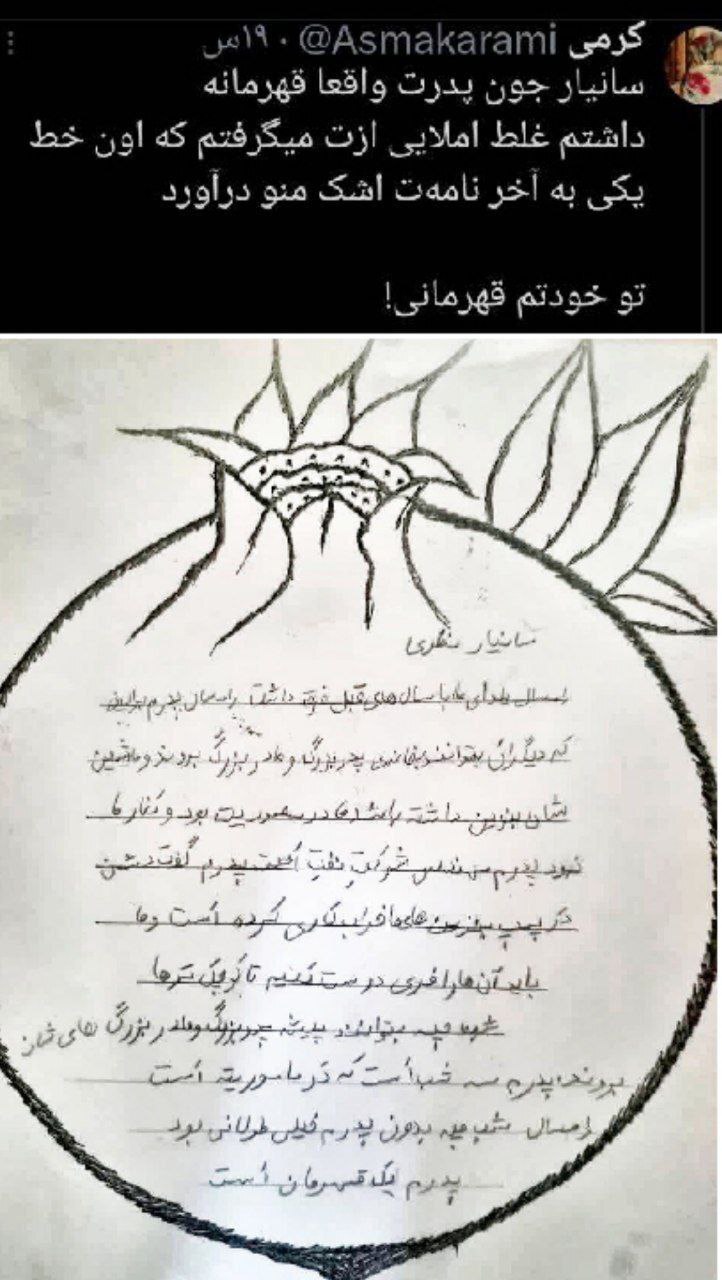 کرمی @Asmakarami · ۱۹س
سانیار جون پدرت واقعا قهرمانه
داشتم غلط املایی ازت میگرفتم که اون خط
یکی به آخر نامه‌ت اشک منو درآورد
تو خودتم قهرمانی!
سانیار منظری
امسال یلدای ما با سال‌های قبل فرق داشت امسال پدرم برای این
که دیگران بتوانند بخانه‌ی پدربزرگ و مادر بزرگ بروند و ماشین
شان بنزین داشته باشد ما در معموریت بود و کنار ما
نبود پدرم مهندس شرکت نفت است پدرم گفت دشمن
در پمپ بنزین های ما خراب کاری کرده است و ما
باید آن ها را فوری درست کنیم تا کوچک ترها
شب چله بتوانند پیش پدربزرگ و مادر بزرگ های شان
بروند پدرم سه شب است که در ماموریته است
امسال شب چله بدون پدرم خیلی طولانی بود
پدرم یک قهرمان است